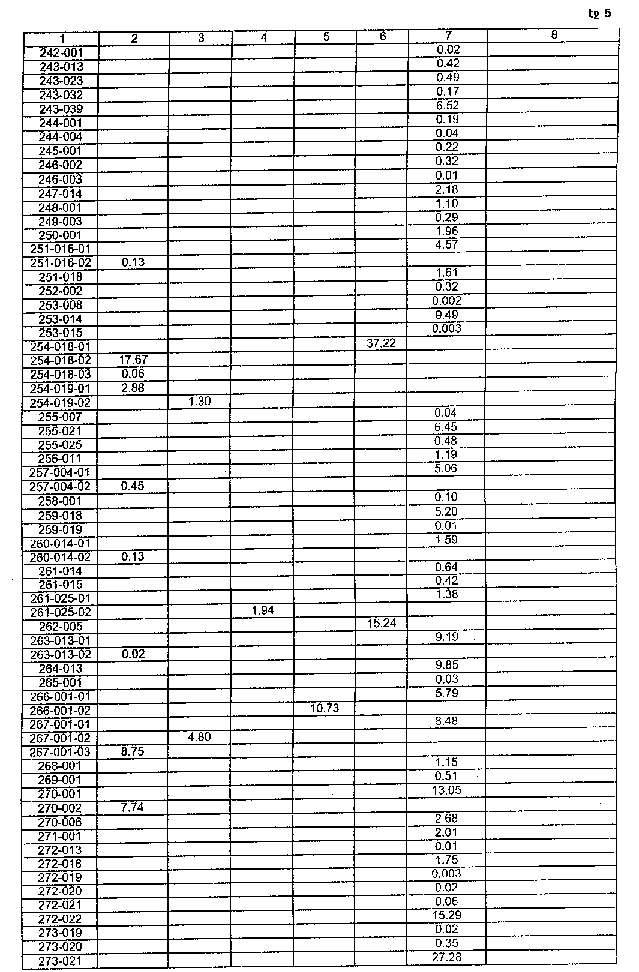 tg 5
1 2 3 4 5 6 7 8
242-001 0.02
243-013 0.42
243-023 0.49
243-032 0.17
243-039 6.52
244-001 0.19
244-004 0.04
245-001 0.22
246-002 0.32
246-003 0.01
247-014 2.18
248-001 1.10
249-003 0.29
250-001 1.96
251-016-01 4.57
251-016-02 0.13
251-018 1.61
252-002 0.32
253-008 0.002
253-014 9.49
253-015 0.003
254-018-01 37.22
254-018-02 17.67
254-018-03 0.06
254-019-01 2.88
254-019-02 1.30
255-007 0.04
255-021 6.45
255-025 0.48
256-011 1.19
257-004-01 5.06
257-004-02 0.45
258-001 0.10
259-018 5.20
259-019 0.01
260-014-01 1.59
260-014-02 0.13
261-014 0.64
261-015 0.42
261-025-01 1.38
261-025-02 1.94
262-005 15.24
263-013-01 9.19
263-013-02 0.02
264-013 9.85
265-001 0.03
266-001-01 5.79
266-001-02 10.73
267-001-01 8.48
267-001-02 4.80
267-001-03 8.75
268-001 1.15
269-001 0.51
270-001 13.05
270-002 7.74
270-006 2.68
271-001 2.01
272-013 0.01
272-018 1.75
272-019 0.003
272-020 0.02
272-021 0.06
272-022 15.29
273-019 0.02
273-020 0.35
273-021 27.28